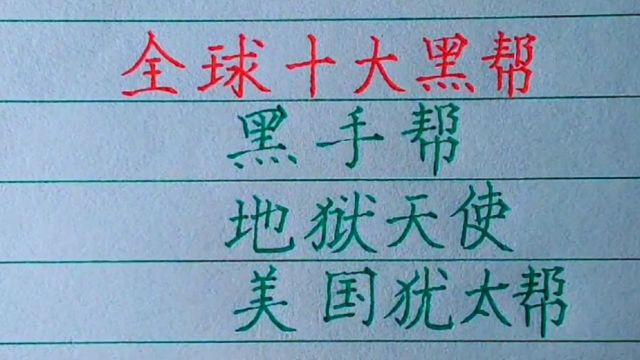 全球十大黑帮
黑手帮
地狱天使
美国犹太帮